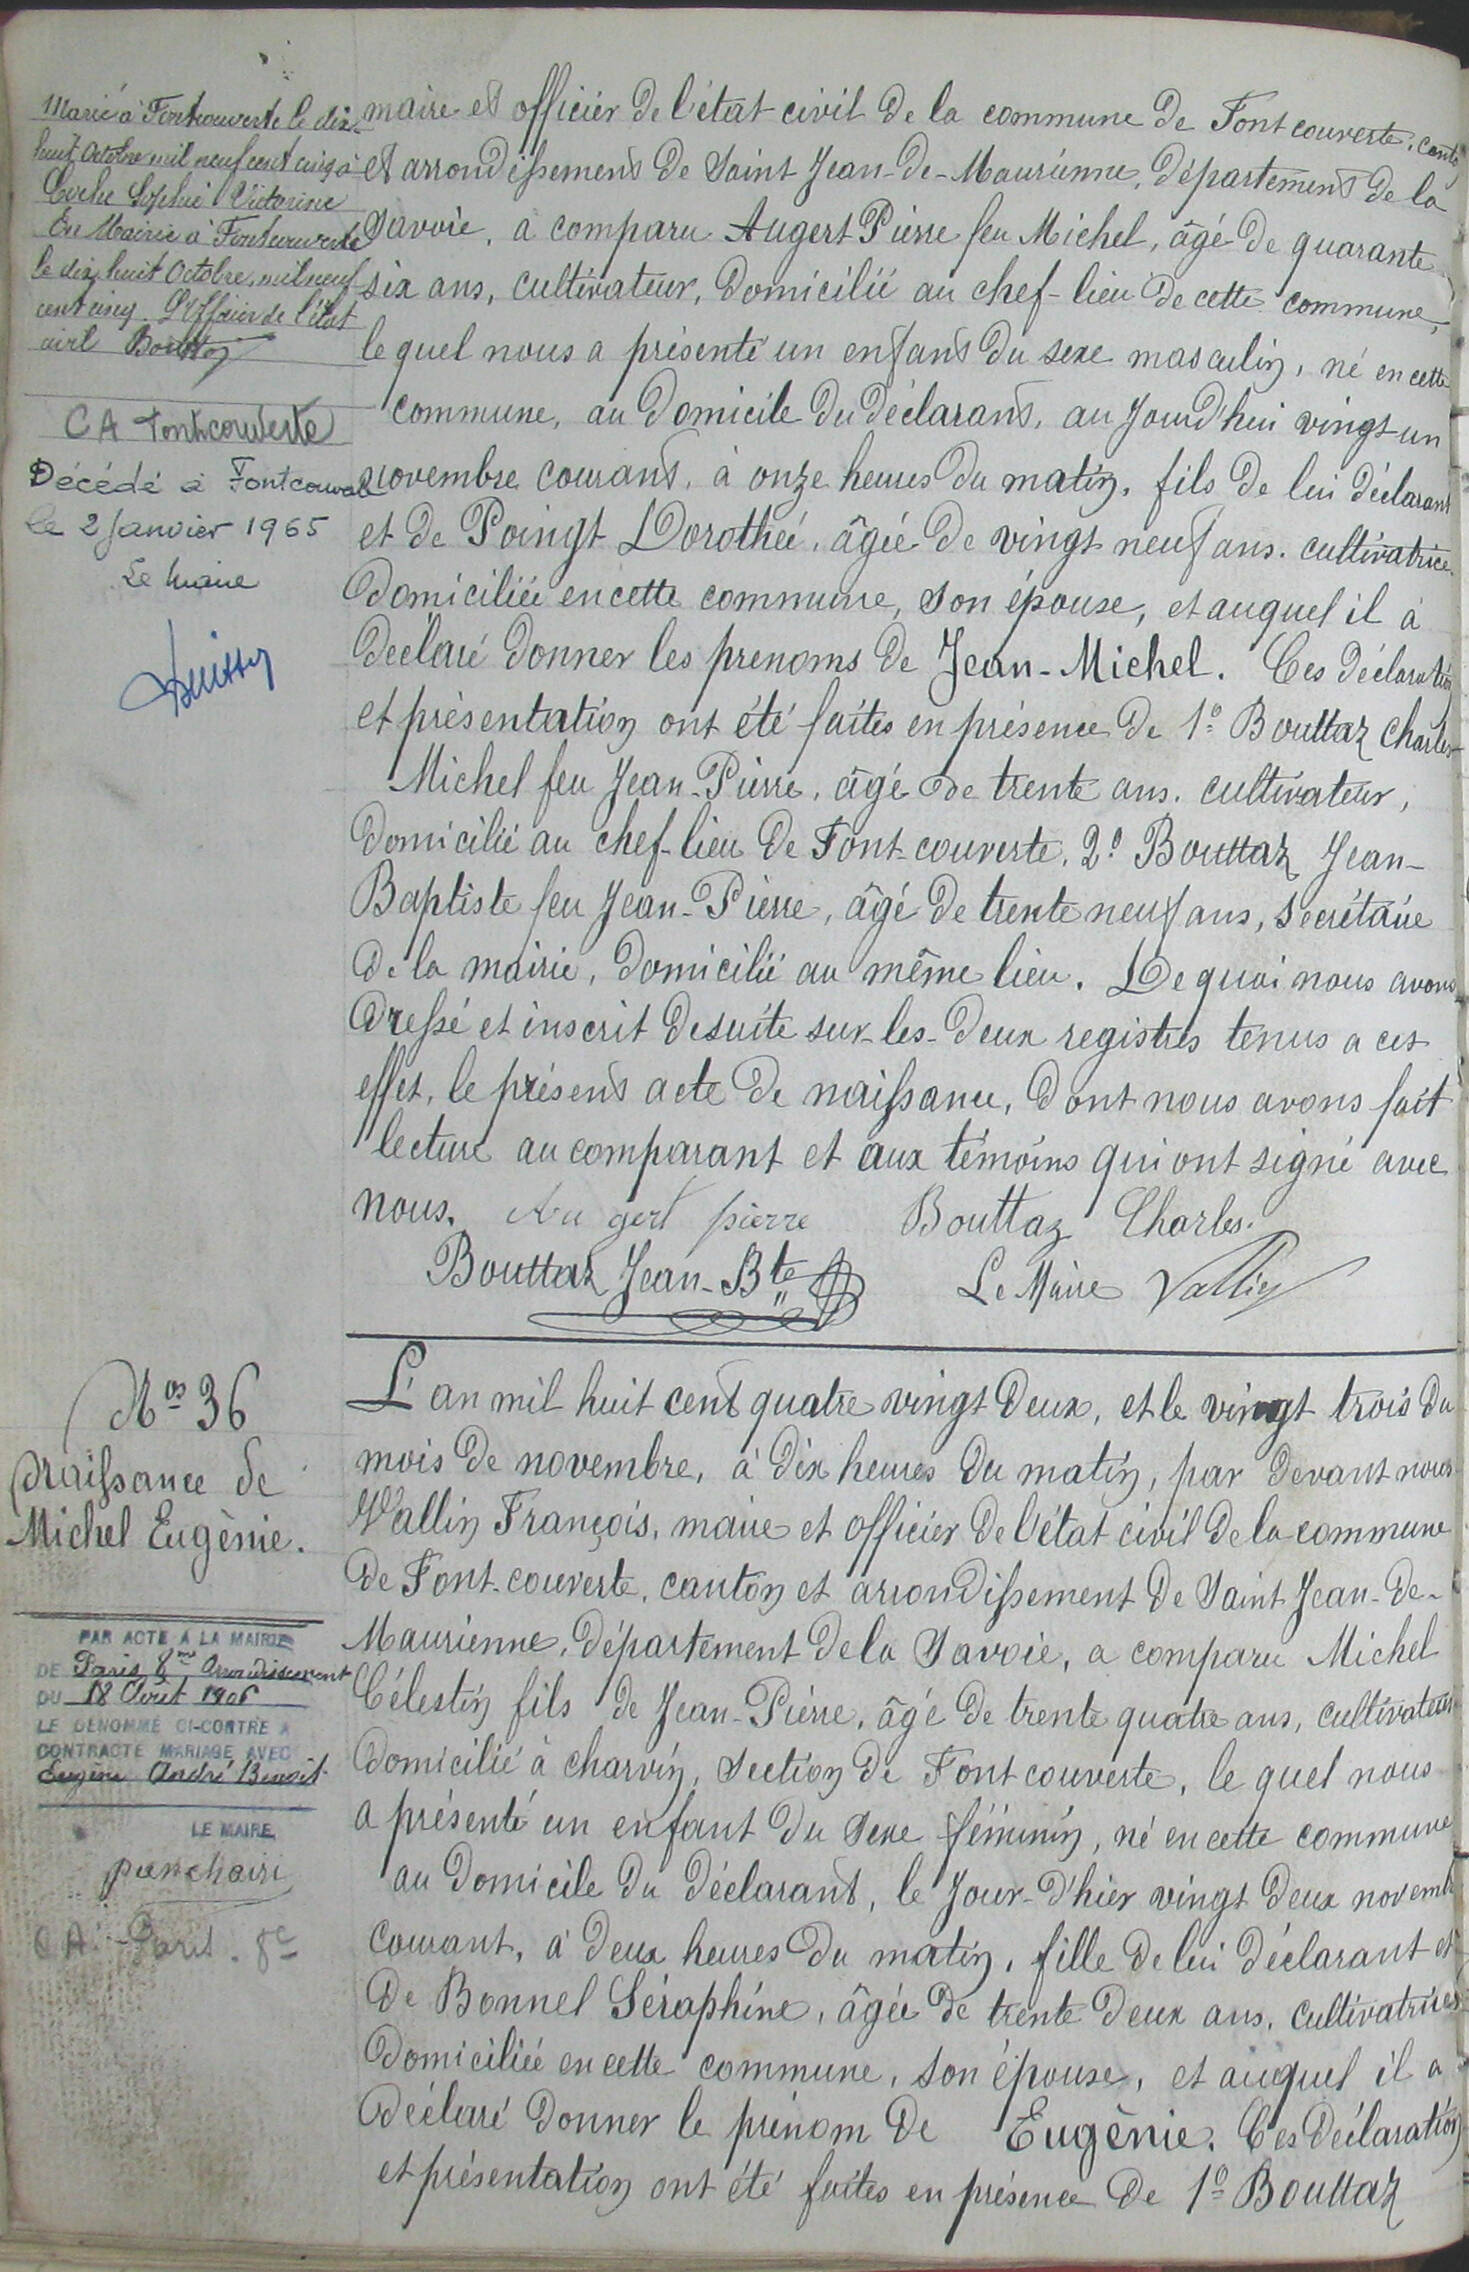 Marié à Fontcouverte le dix-
huit Octobre mil neuf cent cinq à
Coche Sophie Victorine
En Mairie à Fontcouverte
le dix huit Octobre, mil neuf
cent cinq. L'Officier de l'état
civil Bouttaz
CA Fontcouverte
Décédé à Fontcouverte
le 2 Janvier 1965
Le maire
maire et officier de l'état civil de la commune de Font couverte, canton
et arrondissement de Saint Jean-de-Maurienne, département de la
Savoie, a comparu Augert Pierre feu Michel, âgé de quarante
six ans, cultivateur, domicilié au chef-lieu de cette commune,
le quel nous a présenté un enfant du sexe masculin, né en cette
commune, au domicile du déclarant, au jourd'hui vingt un
novembre courant, à onze heures du matin, fils de lui déclarant
et de Poingt Dorothée, âgée de vingt neuf ans, cultivatrice
domiciliée en cette commune, son épouse, et auquel il à
déclaré donner les prenoms de Jean-Michel. Ces déclaration
et présentation ont été faites en présence de 1º Bouttaz Charles
Michel feu Jean-Pierre, âgé de trente ans, cultivateur,
domicilié au chef-lieu de Font-couverte, 2º Bouttaz Jean-
Baptiste feu Jean-Pierre, âgé de trente neuf ans, secrétaire
de la mairie, domicilié au même lieu. De quoi nous avons
dressé et inscrit desuite sur-les-deux registres tenus a cet
effet, le présent acte de naissance, dont nous avons fait
lecture au comparant et aux témoins qui ont signé avec
nous. Au gert pierre Bouttaz Charles.
Bouttaz Jean-Bte Le Maire Vallin
Nos 36
Naissance de
Michel Eugènie.
PAR ACTE A LA MAIRIE
DE Paris 8me Arrondissement
DU 18 Août 1906
LE DENOMMÉ CI-CONTRE A
CONTRACTÉ MARIAGE AVEC
Eugène André Benoit
LE MAIRE,
CA Paris. 8e
L'an mil huit cent quatre vingt deux, et le vingt trois du
mois de novembre, à dix heures du matin, par devant nous
Vallin François, maire et officier de l'état civil de la commune
de Font-couverte, canton et arrondissement de Saint Jean-de-
Maurienne, département de la Savoie, a comparu Michel
Célestin fils de Jean-Pierre, âgé de trente quatre ans, cultivateur
domicilié à charvin, section de Font couverte, le quel nous
a présenté un enfant du sexe féminin, né en cette commune
au domicile du déclarant, le jour-d'hier vingt deux novembre
courant, à deux heures du matin, fille de lui déclarant et
de Bonnel Séraphine, âgée de trente deux ans, cultivatrice
domiciliée en cette commune, son épouse, et auquel il a
déclaré donner le prénom de Eugènie. Ces déclaration
et présentation ont été faites en présence de 1º Bouttaz